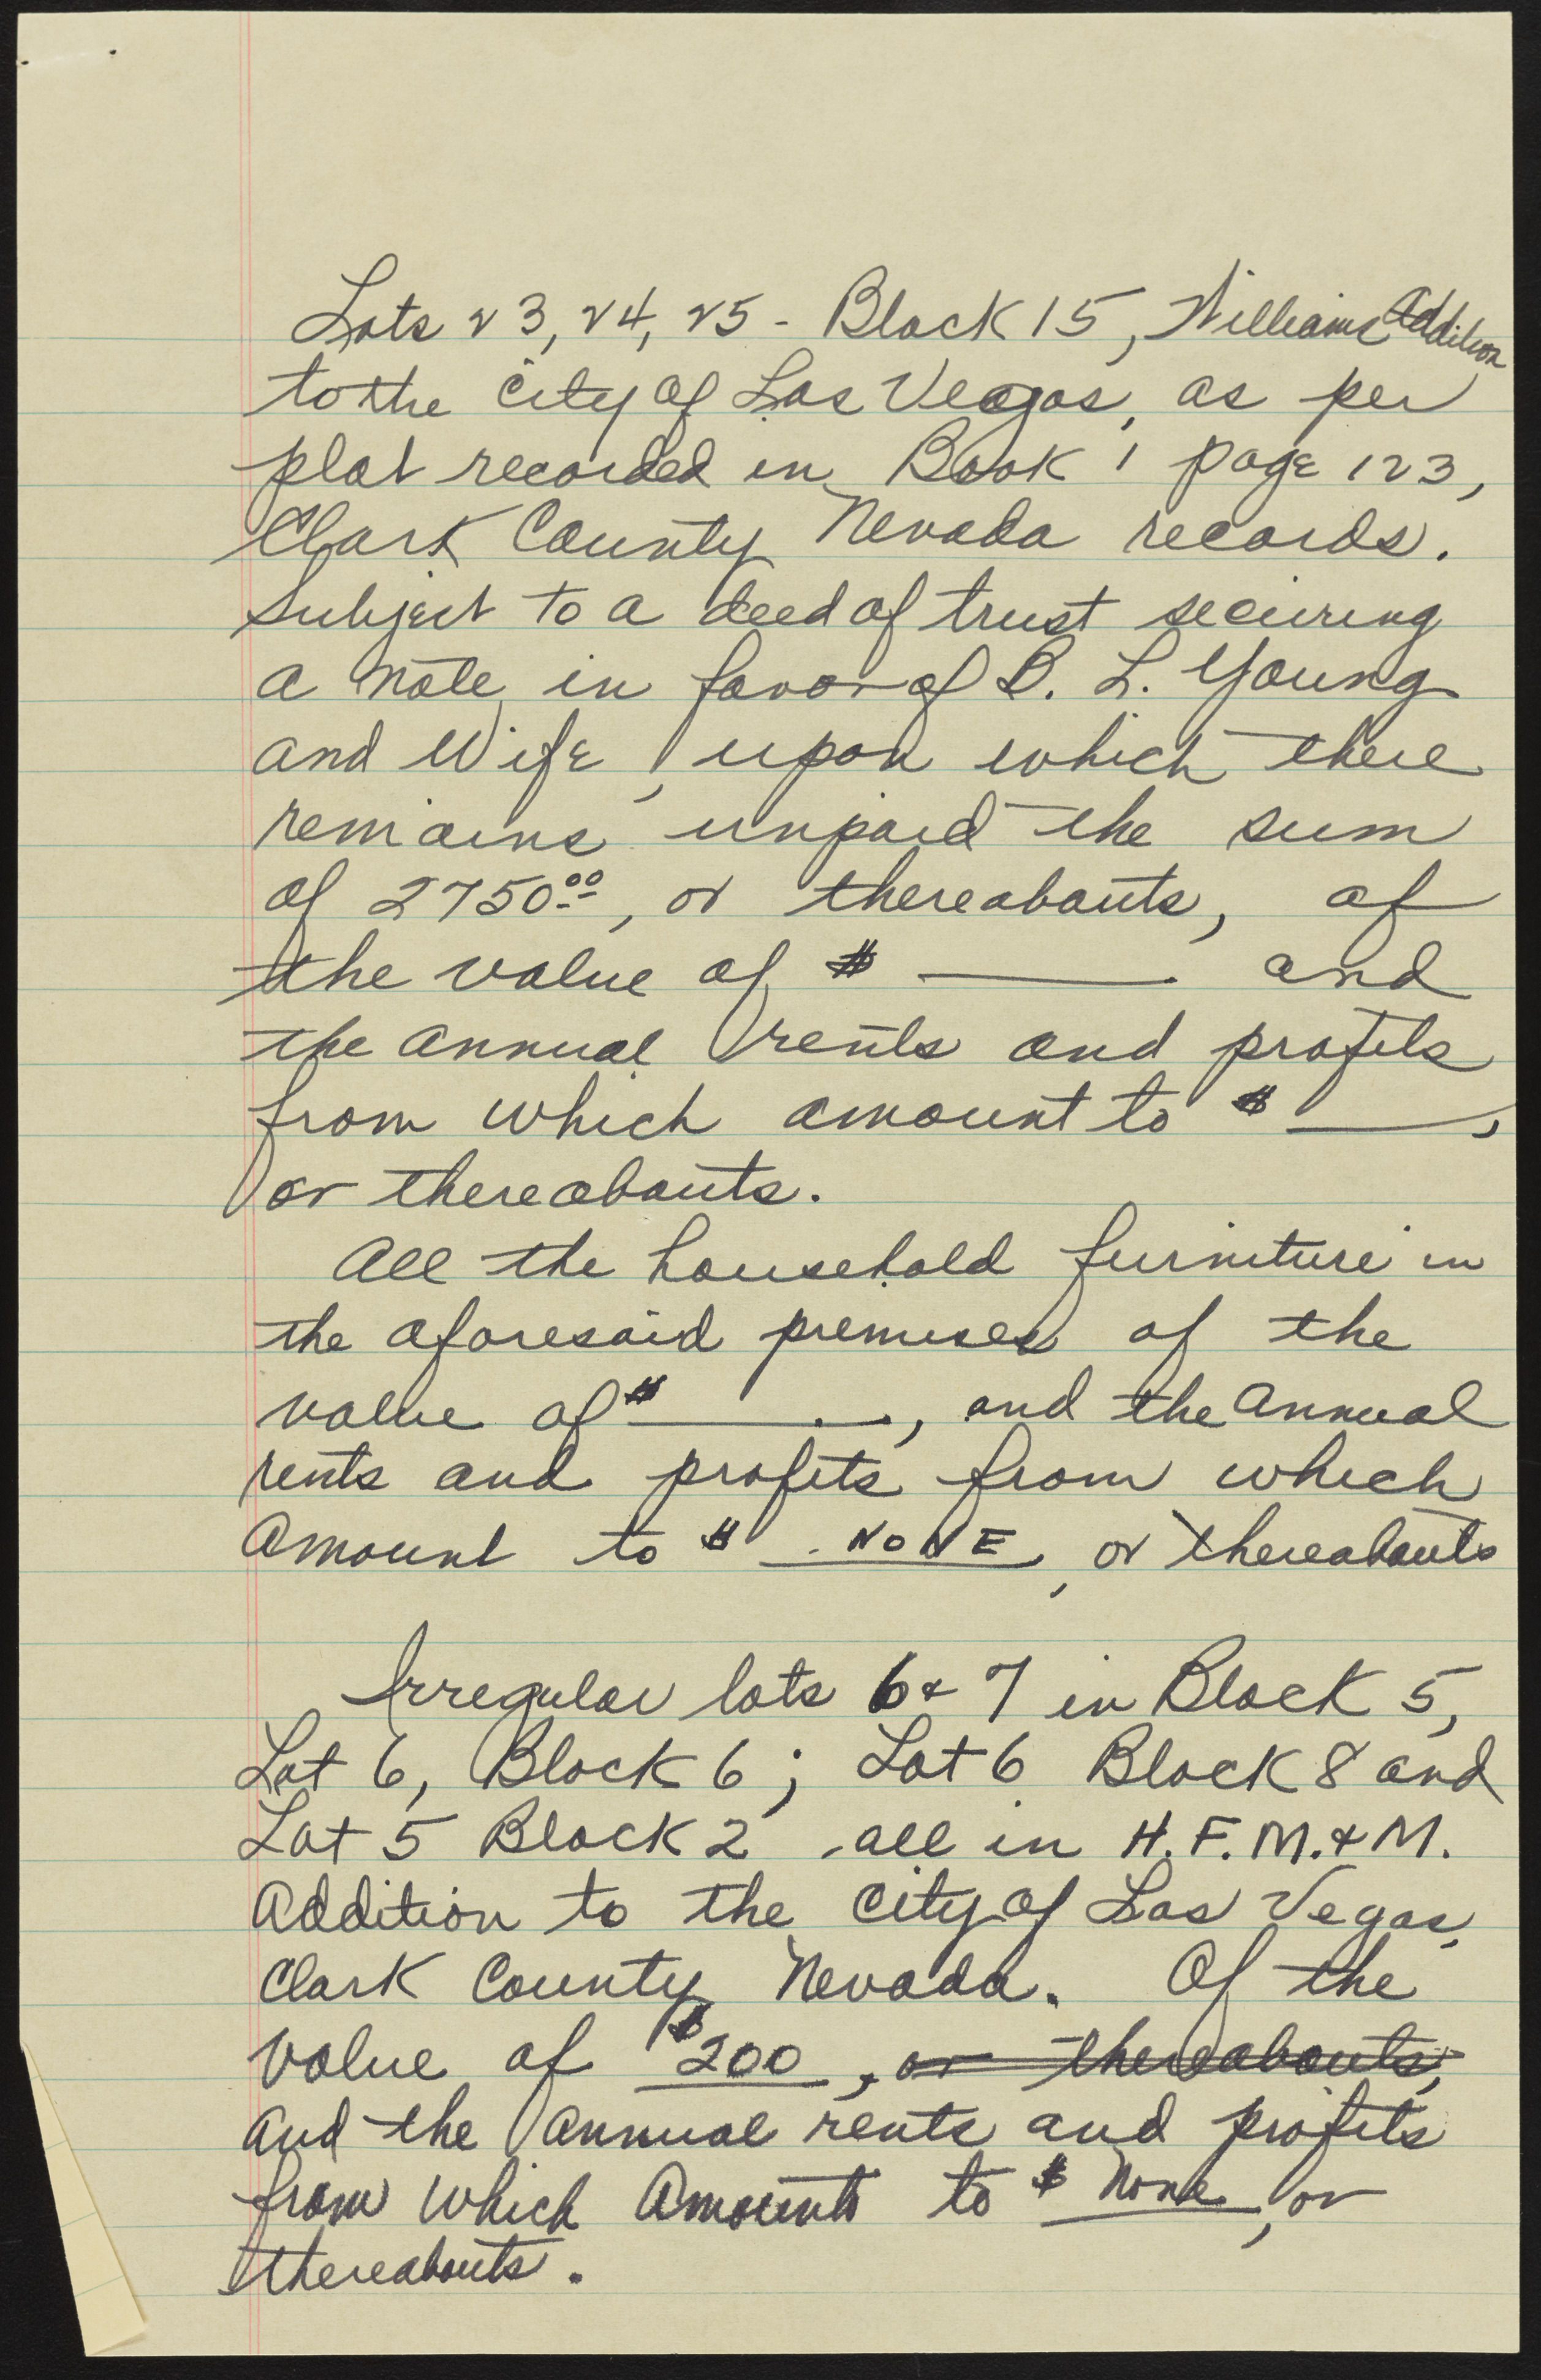 Lots 23, 24, 25 - Block 15, Williams Addition
to the City of Las Vegas, as per
plat recorded in Book 1 page 123,
Clark County Nevada records.
Subject to a deed of trust securing
a note in favor of B. L. Young
and Wife, upon which there
remains unpaid the sum
of 2750.00, or thereabouts, of
the value of $ ______ and
the annual rents and profits
from which amount to $ ____,
or thereabouts.
All the household furniture in
the aforesaid premises of the
value of $ ______, and the annual
rents and profits from which
amount to $ NONE, or thereabouts
Irregular lots 6 & 7 in Block 5,
Lot 6, Block 6; Lot 6 Block 8 and
Lot 5 Block 2 all in H. F. M. & M.
Addition to the City of Las Vegas,
Clark County Nevada. Of the
value of $200, or thereabouts,
and the annual rents and profits
from which amounts to $ None, or
thereabouts.